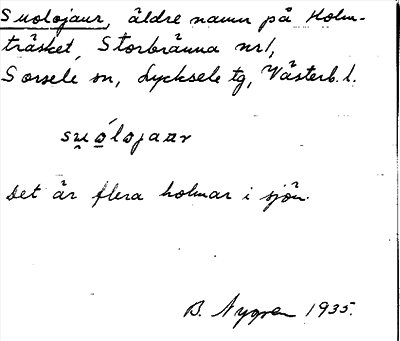 Suolojaur, äldre namn på Holm-
träsket, Storbränna nr 1,
Sorsele sn, Lycksele tg, Västerb. l.
su̯ólojaur
Det är flera holmar i sjön.
B. Nygren 1935.